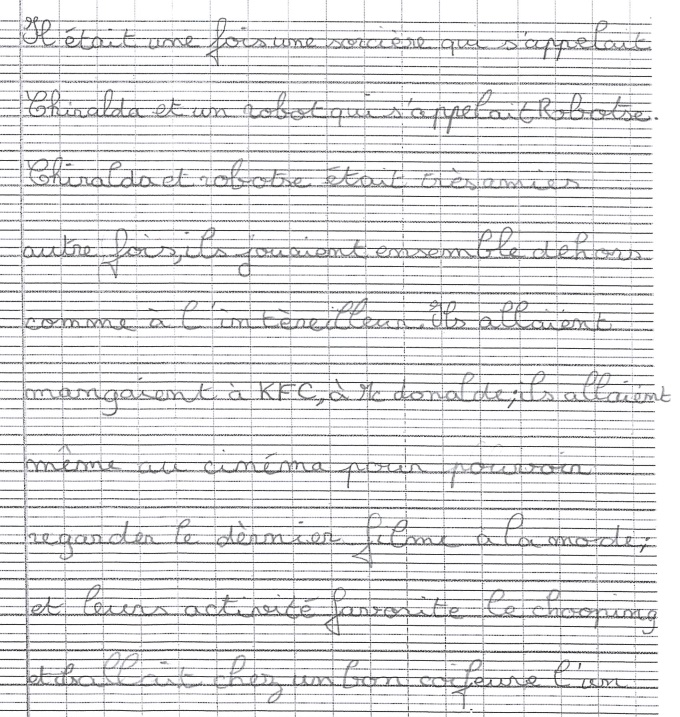 Il était une fois une sorcière qui s'appelait
Chiralda et un robot qui s'appelait Robotse.
Chiralda et robotse était très amies
autre fois, ils jouaient ensemble dehors
comme à l'intèreilleur. Ils allaient
mangaient à KFC, à Mc donalde; ils allaient
même au cinéma pour pouvoir
regarder le dèrnier filme à la mode;
et leurs activité favorite le chooping
et allait chez un bon coifeure l'un